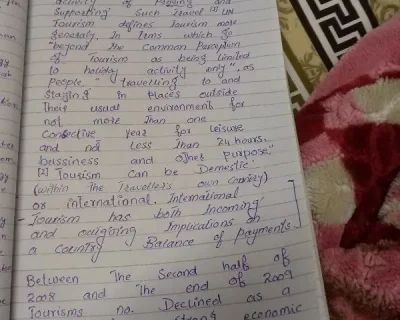 activity of and
Supporting Such travel [2] UN
Tourism defines Tourism more
generaly, In Tems which go
"beyond the Common Perception
of Tourism as being limited
to holiday activity only", as
People "travelling to and
Staying in Places outside
Their usual environment for
not more than one
Consective year for leisure
and not less than 24 hours,
bussiness and other Purpose."
[2] Tourism Can be Domestic
(within The Traveller's own Country)
or international. International
Tourism has both Incoming
and outgoing Implications on
a Country Balance of payments.
Between The Second half of
2008 and The end of 2009
Tourisms no. Declined as a
economic